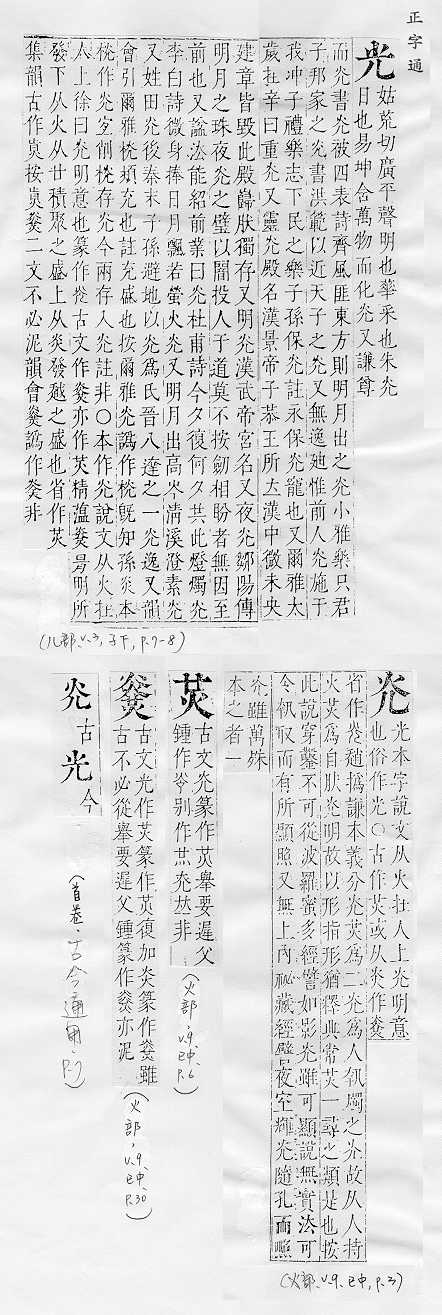 正字通
光 姑荒切廣平聲明也華采也朱灮
日也易坤含萬物而化灮又謙尊
而灮書灮被四表詩齊風匪東方則明月出之灮小雅樂只君
子邦家之灮書洪範以近天子之灮又無逸廸惟前人灮施于
我冲子禮樂志下民之樂子孫保灮註永保灮寵也又爾雅太
歲在辛曰重灮又靈灮殿名漢景帝子恭王所立漢中微未央
建章皆毀此殿巋肰獨存又明灮漢武帝宮名又夜灮鄒陽傳
明月之珠夜灮之璧以闇投人于道莫不按劒相盼者無因至
前也又謚法能紹前業曰灮杜甫詩今夕復何夕共此燈燭灮
李白詩微身捧日月飄若螢火灮又明月出高岑淸溪澄素灮
又姓田灮後秦末子孫避地以灮爲氏晉八達之一灮逸又韻
會引爾雅桄熲充也註充盛也按爾雅灮譌作桄旣知孫炎本
桄作灮宜削桄存灮今兩存入灮註非○本作灮說文从火在
人上徐曰灮明意也篆作古文作㷗亦作炗精薀㷗昜明所
發下从火从廿積聚之盛上从炎發越之盛也省作炗
集韻古作炗按炗㷗二文不必泥韻會㷗譌作㷗非
(儿部、v.3,子下,p.7-8)
灮 光本字說文从火在人上灮明意
也俗作光○古作炗或从炎作㷗
省作趙撝謙本義分灮炗爲二灮爲人執燭之灮故从人持
火炗爲自肰灮明故以形指形猶釋典常炗一尋之類是也按
此說穿鑿不可從波羅蜜多經譬如影灮雖可顯說無實法可
令執取而有所顯照又無上內祕藏經壁夜空輝灮隨孔而照
灮雖萬殊
本之者一
(火部、v.9、巳中,p.3)
炗 古文灮篆作炗舉要遲父
鍾作別作非
(火部、v.9、巳中、p.6)
㷗 古文光作炗篆作炗復加炎篆作㷗雖
古不必從舉要遲父鍾篆作㷗亦泥
(火部,v.9、巳中、p.30)
灮古光今
(首卷・古今通用・p.7)